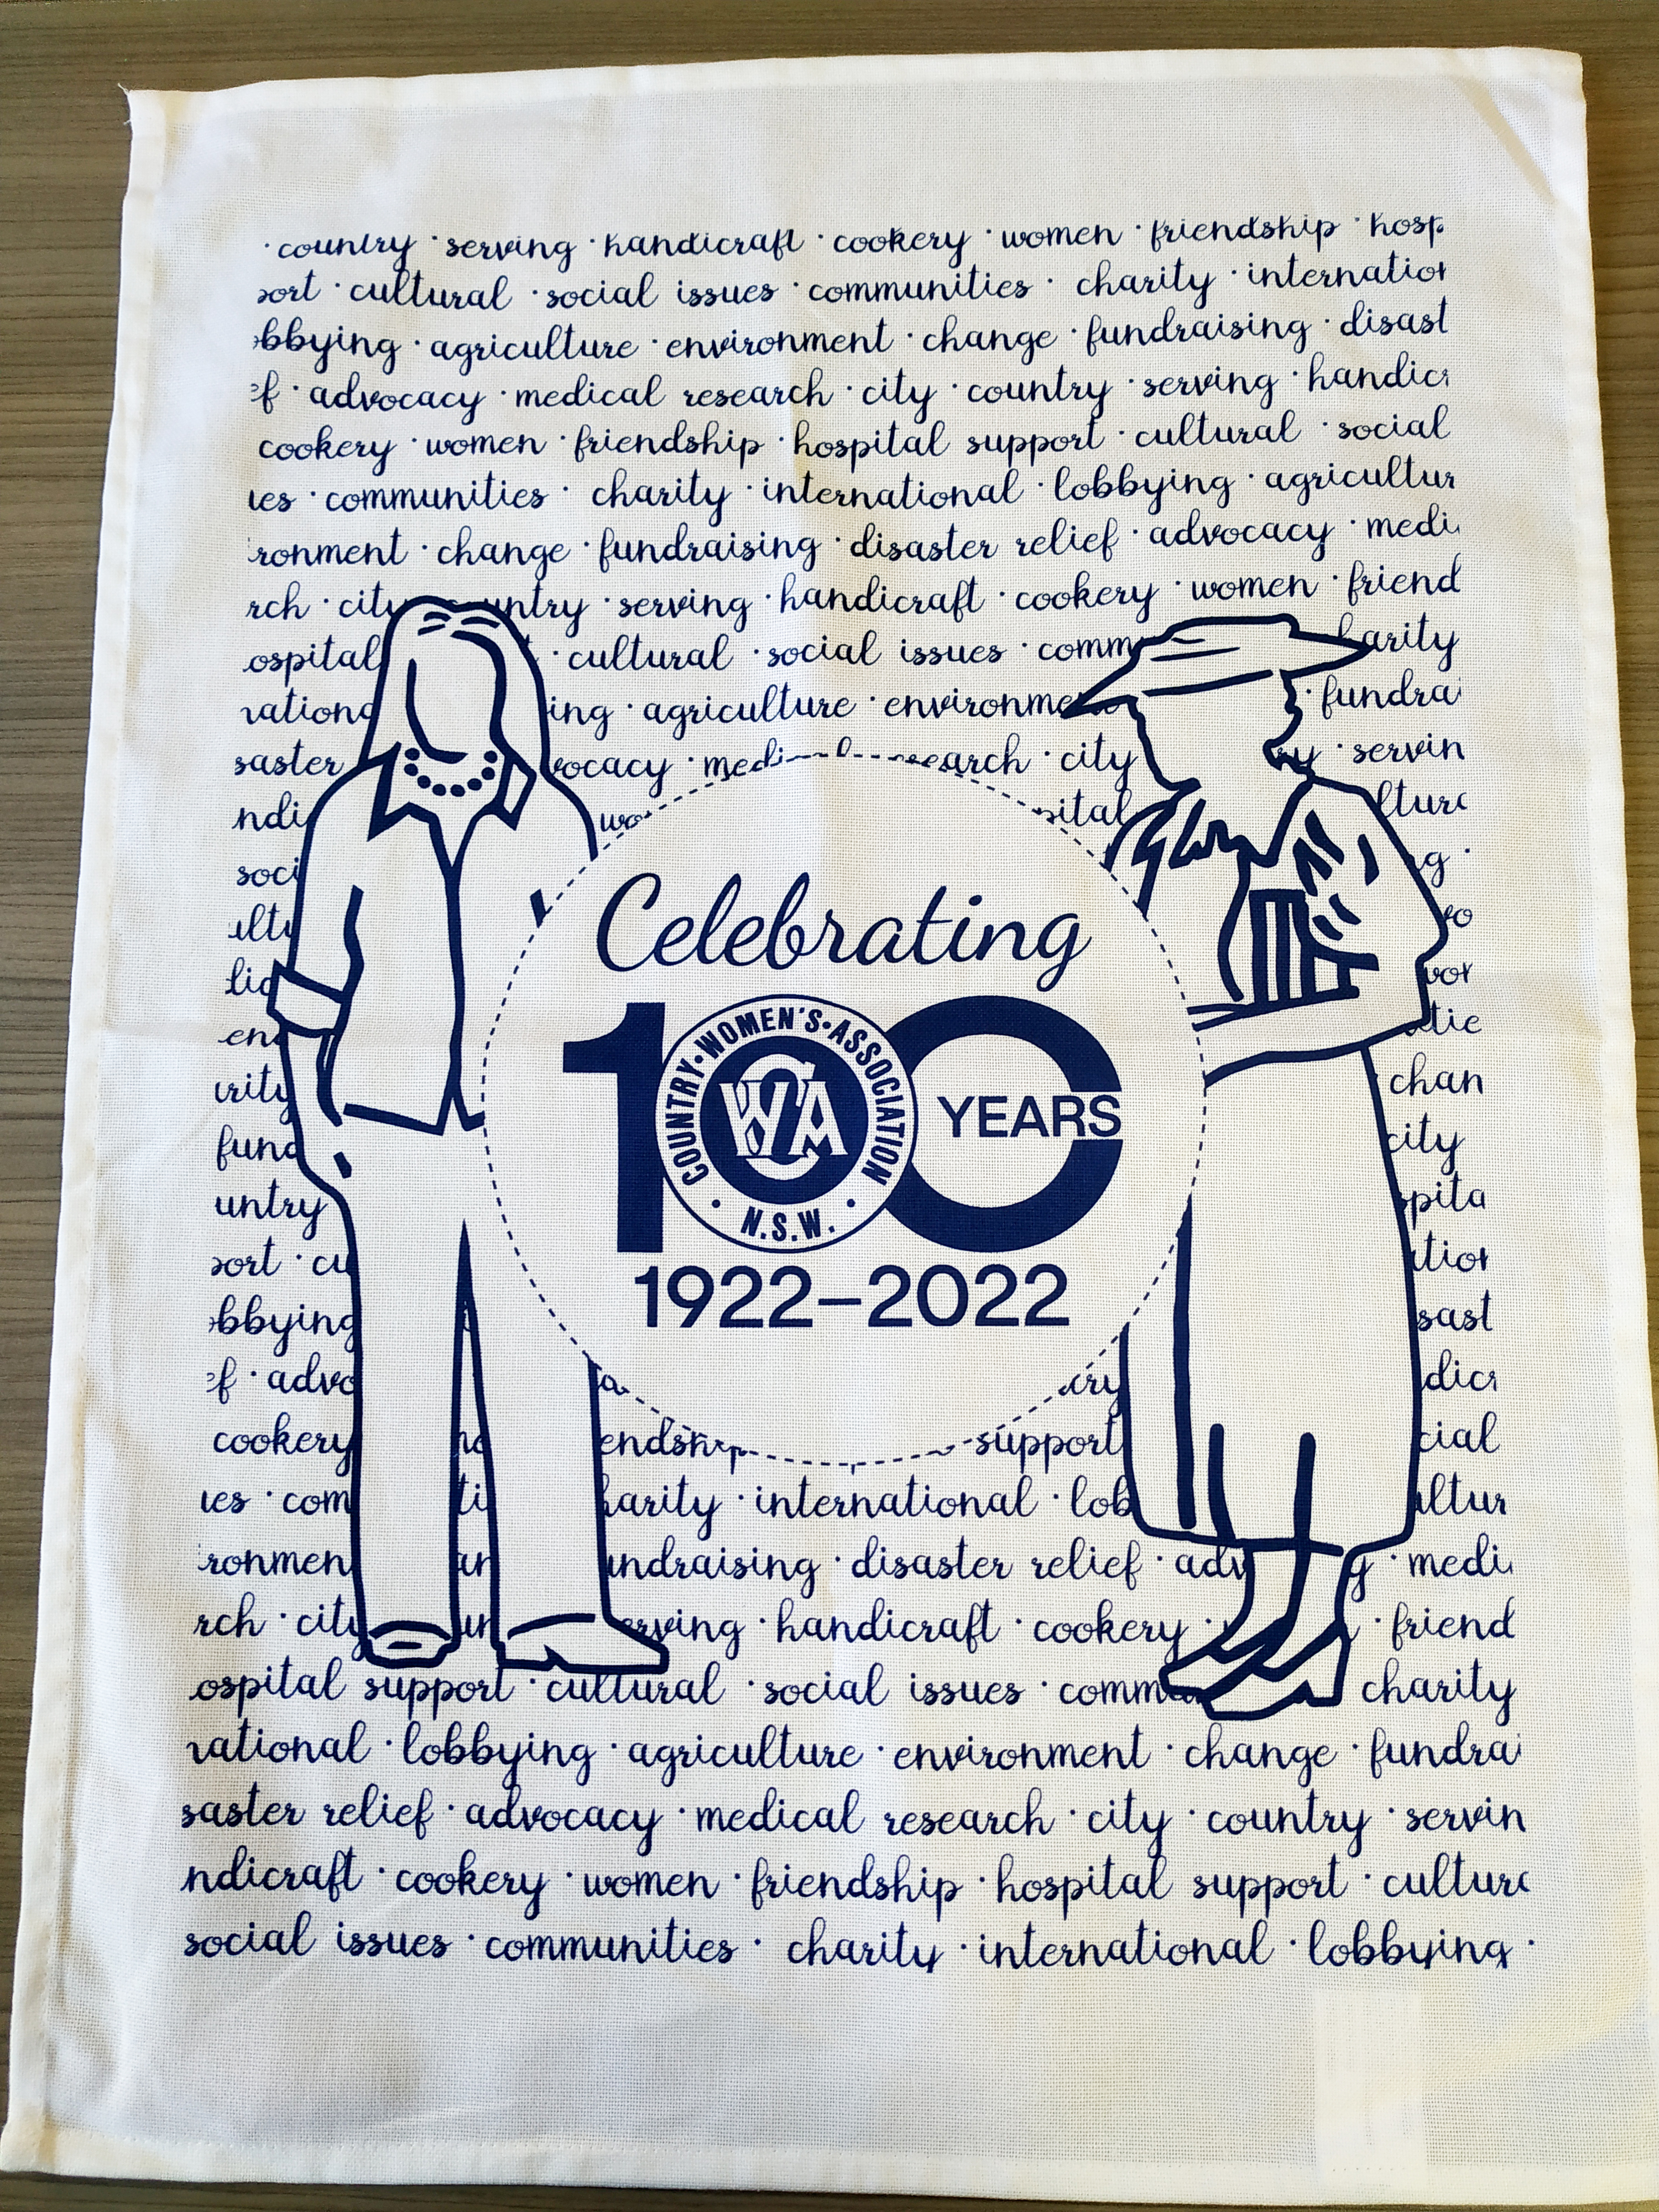 · country · serving · handicraft · cookery · women · friendship · hosp
ort · cultural · social issues · communities · charity · internation
bbying · agriculture · environment · change · fundraising · disast
ef · advocacy · medical research · city · country · serving · handicr
cookery · women · friendship · hospital support · cultural · social
ues · communities · charity · international · lobbying · agricultur
ronment · change · fundraising · disaster relief · advocacy · medi
rch · city untry · serving · handicraft · cookery · women · friend
ospital · cultural · social issues · comm harity
national ing · agriculture · environme · fundra
saster vocacy · medi search · city ry · servin
ndi wo pital ltura
soci g ·
ultu
lic
env atie
urity chan
fund city
untry spita
ort · cu ation
bbying sast
ef · advo dicr
cookery endship support cial
ues · com ti harity · international · lob ultur
ronmen an undraising · disaster relief · adv y · medi
rch · city un erving · handicraft · cookery · friend
ospital support · cultural · social issues · comm charity
national · lobbying · agriculture · environment · change · fundra
saster relief · advocacy · medical research · city · country · servin
ndicraft · cookery · women · friendship · hospital support · cultura
social issues · communities · charity · international · lobbying ·
Celebrating
100 YEARS
COUNTRY · WOMEN'S · ASSOCIATION
CWA
· N.S.W. ·
1922–2022